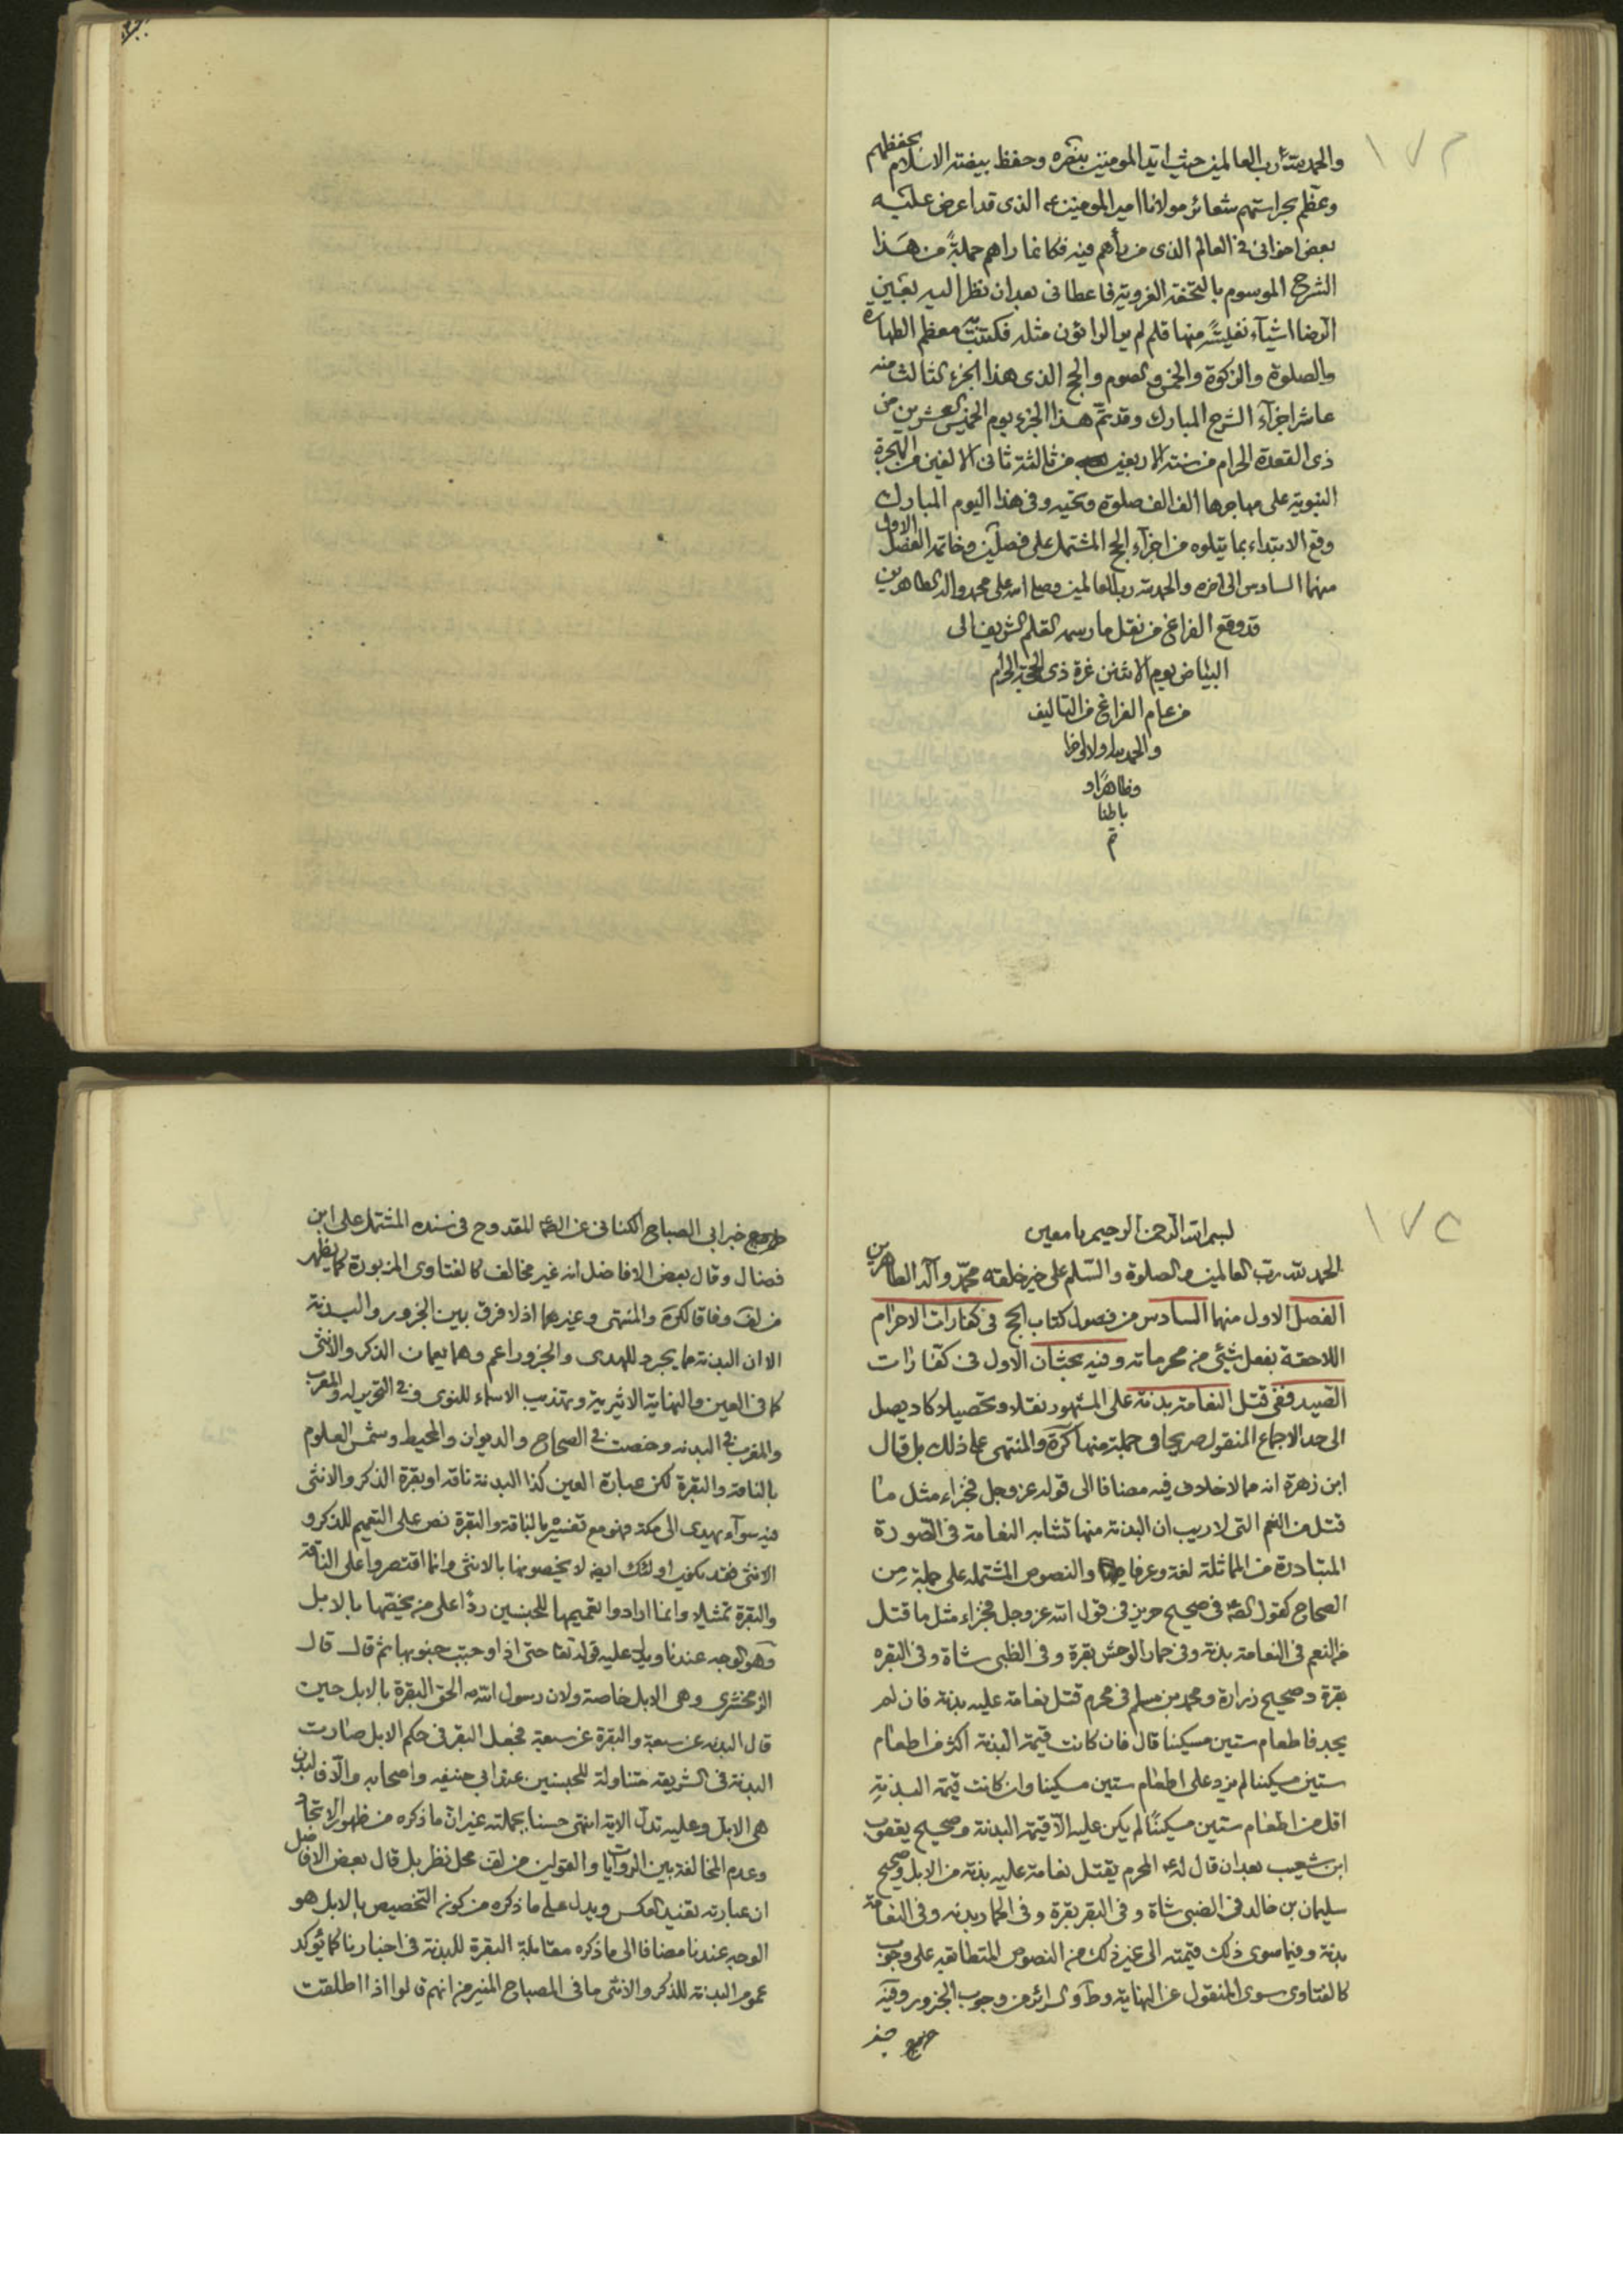 ١٧٣
والحمد لله رب العالمين حيث ايد المومنين بنصره وحفظ بيضة الاسلام بحفظهم
وعظم بحراستهم شعائر مولانا امير المومنين ع الذى قد اعرض عليه
بعض اخوانى فى العالم الذى من رأهم فيه فكانما راهم جملةً من هذا
الشرح الموسوم بالتحفة الغروية فاعطانى بعد ان نظر اليه بعين
الرضا اشيآء نفيسةً منها قلم لم ير الراؤن مثله فكتبت به معظم الطهارة
والصلوة والزكوة والخمس والصوم والحج الذى هذا الجزء الثالث منه
عاشر اجزآء الشرح المبارك وقد تم هذا الجزء يوم الخميس العشرين من
ذى القعدة الحرام من سنة الاربعين من ثالثة ثانى الالفين من الهجرة
النبوية على مهاجرها الف الف صلوة وتحيه وفى هذا اليوم المبارك
وقع الابتداء بما يتلوه من اجزآء الحج المشتمل على فصلين وخاتمه الفصل الاول
منهما السادس الى اخره والحمد لله رب العالمين وصلى الله على محمد واله الطاهرين
قد وقع الفراغ من نقل ما رسمه القلم الشريف الى
البياض يوم الاثنين غرة ذى الحجة الحرام
من عام الفراغ من التاليف
والحمد لله اولا واخرا
وظاهرًا و
باطنا
تم
١٧٤
بسم الله الرحمن الرحيم يا معين
الحمد لله رب العالمين والصلوة والسلم على خير خلقه محمد وآله الطاهرين
الفصل الاول منهما السادس من فصول كتاب الحج فى كفارات الاحرام
اللاحقة بفعل شيئ من محرماته وفيه بحثان الاول فى كفارات
الصيد ففى قتل النعامة بدنة على المشهور نقلا وتحصيلا كاد يصل
الى حد الاجماع المنقول صريحا فى جملة منها كرة والمنتهى على ذلك بل قال
ابن زهرة انه مما لا خلاف فيه مضافا الى قوله عز وجل فجزاء مثل ما
قتل من النعم التى لا ريب ان البدنة منها تشابه النعامة فى الصورة
المتبادرة من المماثلة لغة وعرفا والنصوص المشتمله على جملة من
الصحاح كقول الصادق فى صحيح حريز فى قول الله عز وجل فجزاء مثل ما قتل
من النعم فى النعامة بدنة وفى حمار الوحش بقرة وفى الظبى شاة وفى البقره
بقرة وصحيح زرارة ومحمد بن مسلم فى محرم قتل نعامة عليه بدنة فان لم
يجد فاطعام ستين مسكينا قال فان كانت قيمة البدنة اكثر من اطعام
ستين مسكينا لم يزد على اطعام ستين مسكينا وان كانت قيمة البدنةِ
اقل من اطعام ستين مسكينًا لم يكن عليه الا قيمة البدنة وصحيح يعقوب
ابن شعيب بعد ان قال له ع المحرم يقتل نعامة عليه بدنة من الابل وصحيح
سليمان بن خالد فى الضبى شاة وفى البقر بقرة وفى الحمار بدنه وفى النعامة
بدنة وفيما سوى ذلك قيمته الى غير ذلك من النصوص المتطابقه على وجوب
كالفتاوى سوى المنقول عن النهاية وط والسرائر من وجوب الجزور وفيه
خبر
خبر ابى الصباح الكنانى عن الصادق ع المقدوح فى سنده المشتمل على ابن
فضال وقال بعض الافاضل انه غير مخالف كالفتاوى المزبورة كما يظهر
من لف وفاقا لكرة والمنتهى وغيرهما اذ لا فرق بين الجزور والبدنة
الا ان البدنة ما يجرد للهدى والجزور اعم وهما يعمان الذكر والانثى
كما فى العين والنهاية الاثيرية وتهذيب الاسماء للنوى وفى التحرير له والمعرب
والمغرب فى البدنه وخصت فى الصحاح والديوان والمحيط وشمس العلوم
بالناقة والبقرة لكن عبارة العين كذا البدنة ناقة او بقرة الذكر والانثى
فيه سوآء يهدى الى مكة فهو مع تفسيره بالناقة والبقرة نص على التعميم للذكر و
الانثى فقد يكون اولئك ايضا لا يخصونها بالانثى وانما اقتصروا على الناقة
والبقرة تمثيلا وانما ارادوا تعميمها للجنسين ردًا على من يخصها بالابل
وهو الوجه عندنا ويدل عليه قوله تعا حتى اذا وجبت جنوبها ثم قال قال
الزمخشرى وهى الابل خاصة ولان رسول الله ص الحق البقرة بالابل حين
قال البدنه عن سبعة والبقرة عن سبعة فجعل البقر فى حكم الابل صارت
البدنة فى الشريعة متناولة للجنسين عند ابى حنيفه واصحابه والا فالبدن
هى الابل وعليه تدل الاية انتهى حسنا بجملته غير ان ما ذكره من ظهور الاتحاد
وعدم المخالفة بين الروايات والقولين من لف محل نظر بل قال بعض الافاضل
ان عبارته تفيد العكس ويدل على ما ذكره من كون التخصيص بالابل هو
الوجه عندنا مضافا الى ما ذكره مقابلة البقرة للبدنة فى اخبارنا كما يؤكد
عموم البدنة للذكر والانثى ما فى المصباح المنير من انهم قالوا اذا اطلقت